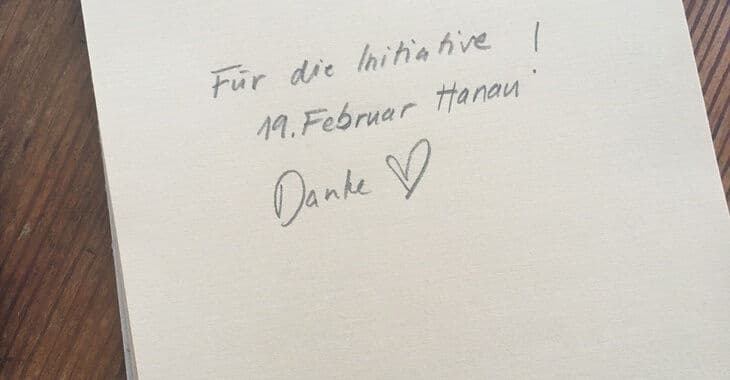 Für die Initiative !
19. Februar Hanau
Danke ♡